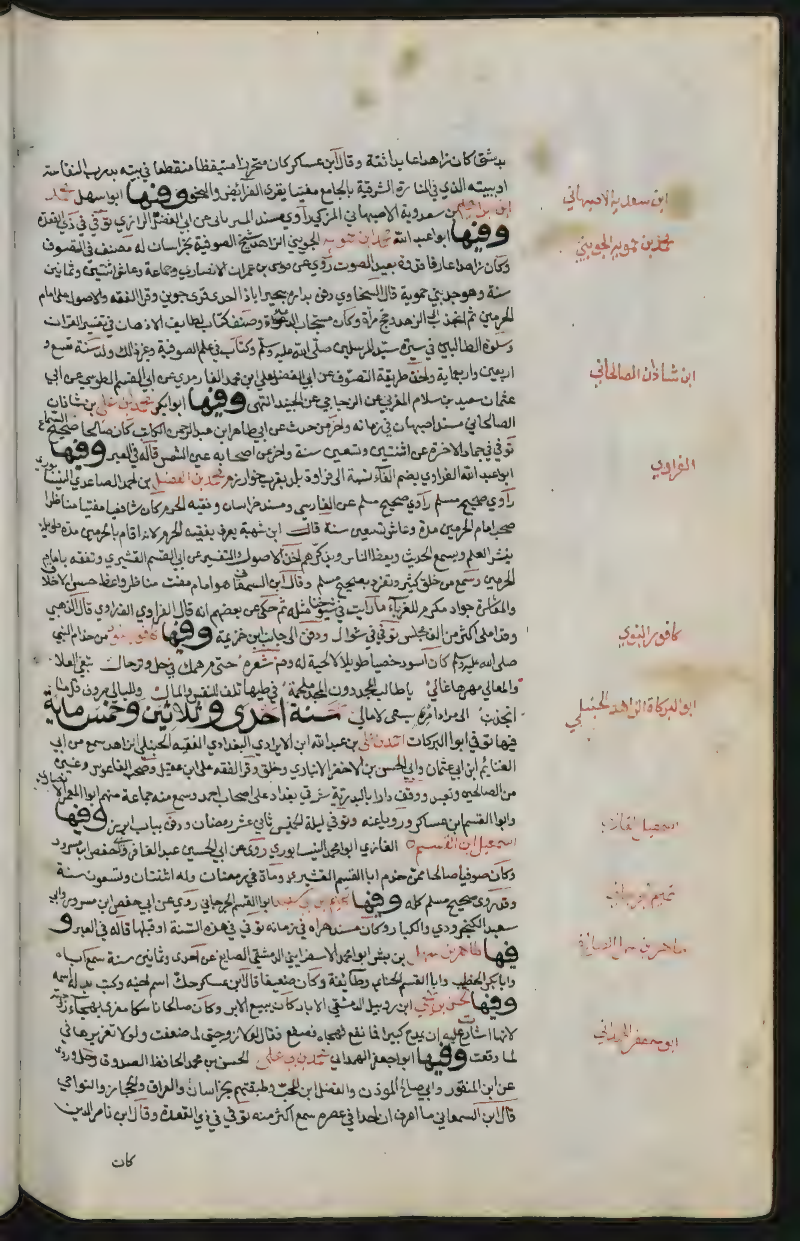 بدمشق كان زاهدا عابدا ثقة وقال ابن عساكر كان متحرزا متيقظا منقطعا في بيته بدرب النقاسة
او بيته الذي في المنارة الشرقية بالجامع مفتيا يقرى الفرائض والنحو وفيها ابو سهل محمد
ابن ابراهيم بن سعدوية الاصبهاني المزكي راوي مسند الروياني عن ابي الفضل الرازي توفي في ذي القعدة
وفيها ابو عبد الله محمد بن حمويه الجويني الزاهد شيخ الصوفية بخراسان له مصنف في التصوف
وكان زاهدا عارفا قدوة بعيد الصوت روى عن موسى بن عمران الانصاري وجماعة وعاش اثنتين وثمانين
سنة وهو جد بني حموية قال السخاوي دفن بداره ببحيراباذ احدى قرى جوين وقرا الفقه والاصول على امام
الحرمين ثم انجذب الى الزهد وحج مرات وكان مستجاب الدعوة وصنف كتاب لطايف الاذهان في تفسير القران
وسلوة الطالبين في سيرة سيد المرسلين صلى الله عليه وسلم وكتاب في علم الصوفية وغير ذلك ولد سنة تسع و
اربعين واربعماية واخذ طريقة التصوف عن ابي الفضل علي ابن محمد الفارمدي عن ابي القسم الطوسي عن ابي
عثمان سعيد بن سلام المغربي عن الزجاجي عن الجنيد انتهى وفيها ابو بكر محمد بن علي بن شاذان
الصالحاني مسند اصبهان في زمانه واخر من حدث عن ابي طاهر ابن عبد الرحمن الكاتب كان صالحا صحيح السماع
توفي في جماد الاخرة عن اثنتين وتسعين سنة واخر من اصحابه عين الشمس قاله في العبر وفيها
ابو عبد الله الفراوي بضم الفاء نسبة الى فراوة بلد بقرب خوارزم محمد بن الفضل بن احمد الصاعدي النيسابوري
راوي صحيح مسلم عن الفارسي ومسند خراسان وفقيه الحرم كان شافعيا مفتيا مناظرا
صحب امام الحرمين مدة وعاش تسعين سنة قال ابن شهبة يعرف بفقيه الحرم لانه اقام بالحرمين مدة طويلة
ينشر العلم ويسمع الحديث ويعظ الناس ويذكرهم اخذ الاصول والتفسير عن ابي القسم القشيري وتفقه بامام
الحرمين وسمع من خلق كثير وتفرد بصحيح مسلم وقال ابن السمعاني هو امام مفت مناظر واعظ حسن الاخلاق
والمعاشرة جواد مكرم للغرباء ما رايت في شيوخنا مثله ثم حكى عن بعضهم انه قال الفراوي الف راوي قال الذهبي
وقد املى اكثر من الف مجلس توفي في شوال ودفن الى جانب ابن خزيمة وفيها كافور النبوي من خدام النبي
صلى الله عليه وسلم كان اسود خصيا طويلا لا لحية له ومن شعره حتى م همك في حل وترحال تبغي العلا
والمعالي مهرها غالي يا طالب المجد دون المجد ملحمة في طيها تلف للنفس والمال ولليالي صروف قلما
انجذبت الى مراد امرء يسعى لامال سنة احدى وثلاثين وخمسماية
فيها توفي ابو البركات احمد بن علي بن عبد الله ابن الابرادي البغدادي الفقيه الحنبلي الزاهد سمع من ابي
الغنايم ابن ابي عثمان وابي الحسن بن الاخضر الانباري وخلق وقرا الفقه على ابن عقيل وصحب الفاعوس وغيره
من الصالحين وتعبد ووقف دارا بالبدرية شرقي بغداد على اصحاب احمد وسمع منه جماعة منهم ابو المعمر الانصاري
وابو القسم ابن عساكر ورويا عنه وتوفي ليلة الخميس ثاني عشر رمضان ودفن بباب ابرز وفيها
اسمعيل ابن القسم الغازي ابو محمد النيسابوري روى عن ابي الحسين عبد الغافر وابي حفص ابن مسرور
وكان صوفيا صالحا ممن خدم ابا القسم القشيري ومات في رمضان وله اثنتان وتسعون سنة
وقد روى صحيح مسلم كله وفيها تميم بن ابي سعيد ابو القسم الجرجاني روى عن ابي حفص ابن مسرور وابي
سعيد الكنجرودي والكبار وكان مسند هراة في زمانه توفي في هذه السنة او قبلها قاله في العبر و
فيها طاهر بن سهل بن بشر ابو محمد الاسفرايني الدمشقي الصايغ عن احدى وثمانين سنة سمع اباه
وابا بكر الخطيب وابا القسم الحنائي وطايفة وكان ضعيفا قال ابن عساكر حك اسم اخيه وكتب بدله اسمه
ابن روبيل الدمشقي الابار كان يبيع الابر وكان صالحا ناسكا مغرى بهجاء زوجته
لانها اشارت عليه ان يمدح كبيرا فما نفع فهجاه فصفع فقال فلولا زوجتي لما صفعت ولولا تعزيرها لي
لما وقعت وفيها ابو جعفر الهمداني محمد بن ابي علي الحسن بن محمد الحافظ الصدوق رحل وروى
عن ابن النقور وابي صالح الموذن والفضل ابن المحب وطبقتهم بخراسان والعراق والحجاز والنواحي
قال ابن السمعاني ما اعرف ان احدا في عصره سمع اكثر منه توفي في ذي القعدة وقال ابن ناصر الدين
كان
ابن سعدية الاصبهاني
محمد بن حمويه الجويني
ابن شاذان الصالحاني
الفراوي
كافور النبوي
ابو البركات الزاهد الحنبلي
اسمعيل الغازي
تميم الجرجاني
طاهر بن سهل الصايغ
ابو جعفر الهمداني